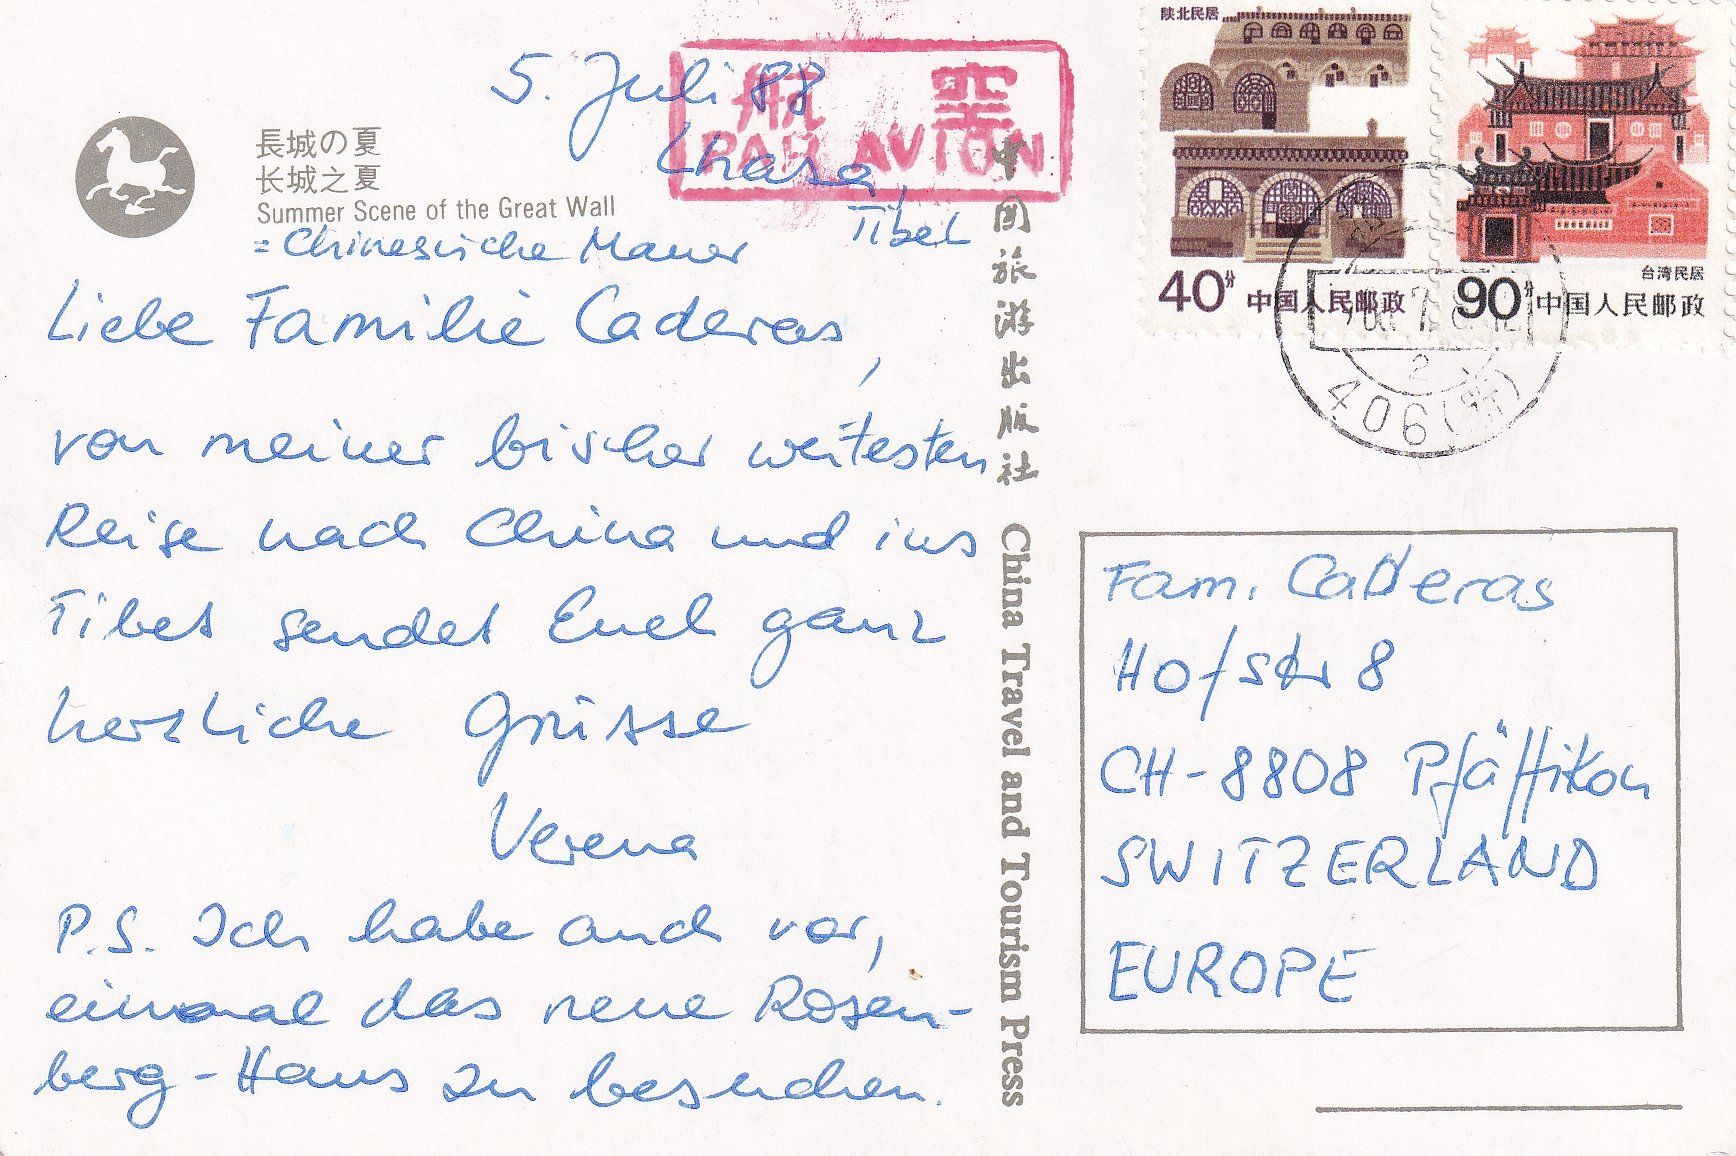 5. Juli 88
Lhasa,
Tibet
航空
PAR AVION
長城の夏
长城之夏
Summer Scene of the Great Wall
= Chinesische Mauer
Liebe Familie Caderas,
von meiner bisher weitesten
Reise nach China und ins
Tibet sendet Euch ganz
herzliche Grüsse
Verena
P.S. Ich habe auch vor,
einmal das neue Rosen-
berg-Haus zu besuchen.
中国旅游出版社 China Travel and Tourism Press
陕北民居
40分 中国人民邮政
台湾民居
90分 中国人民邮政
2
406
Fam. Caderas
Hofstr 8
CH-8808 Pfäffikon
SWITZERLAND
EUROPE